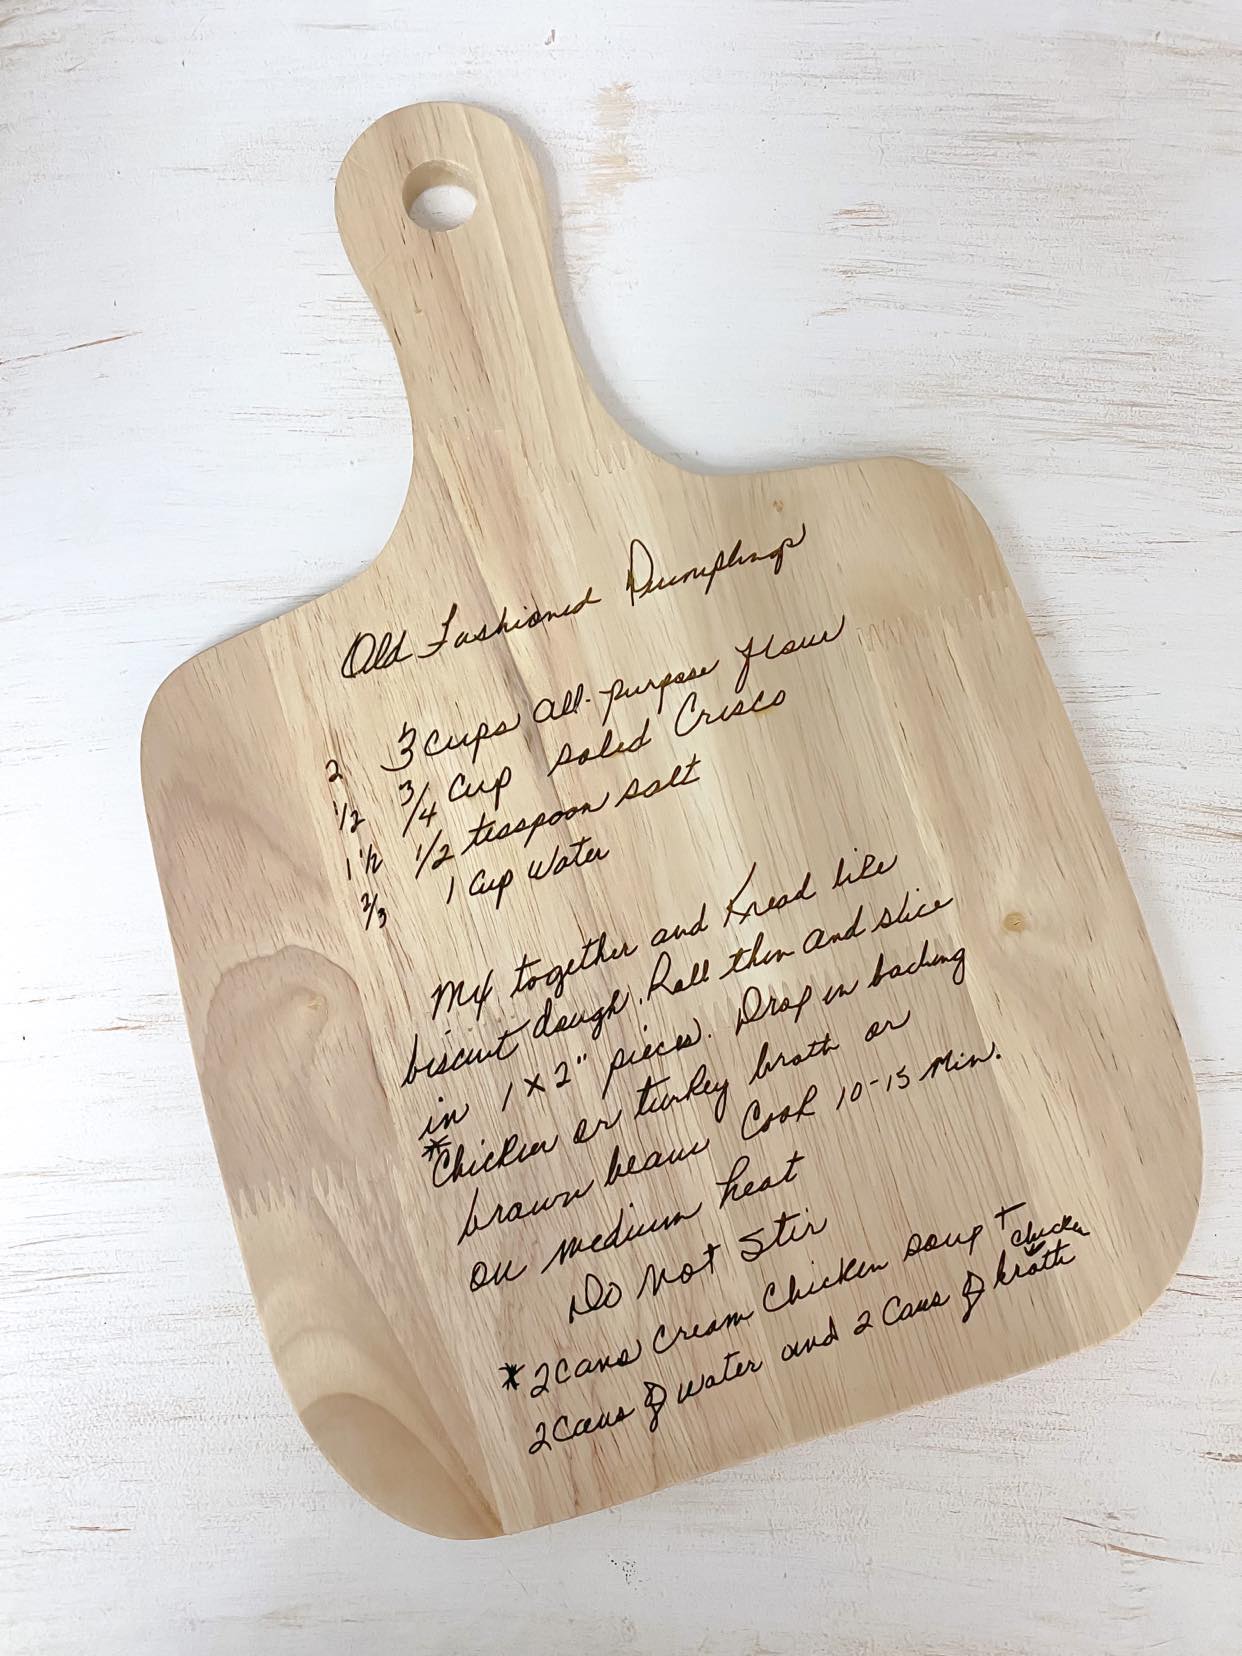 Old Fashioned Dumplings
2 3 cups all-purpose flour
1/2 3/4 cup solid Crisco
1 1/2 1/2 teaspoon salt
2/3 1 cup water
Mix together and Knead like
biscuit dough. Roll thin and slice
in 1 x 2" pieces. Drop in boiling
*Chicken or turkey broth or
brown beans Cook 10-15 Min.
on medium heat
Do Not Stir
*2 cans cream chicken soup +
2 cans of water and 2 cans of chicken broth